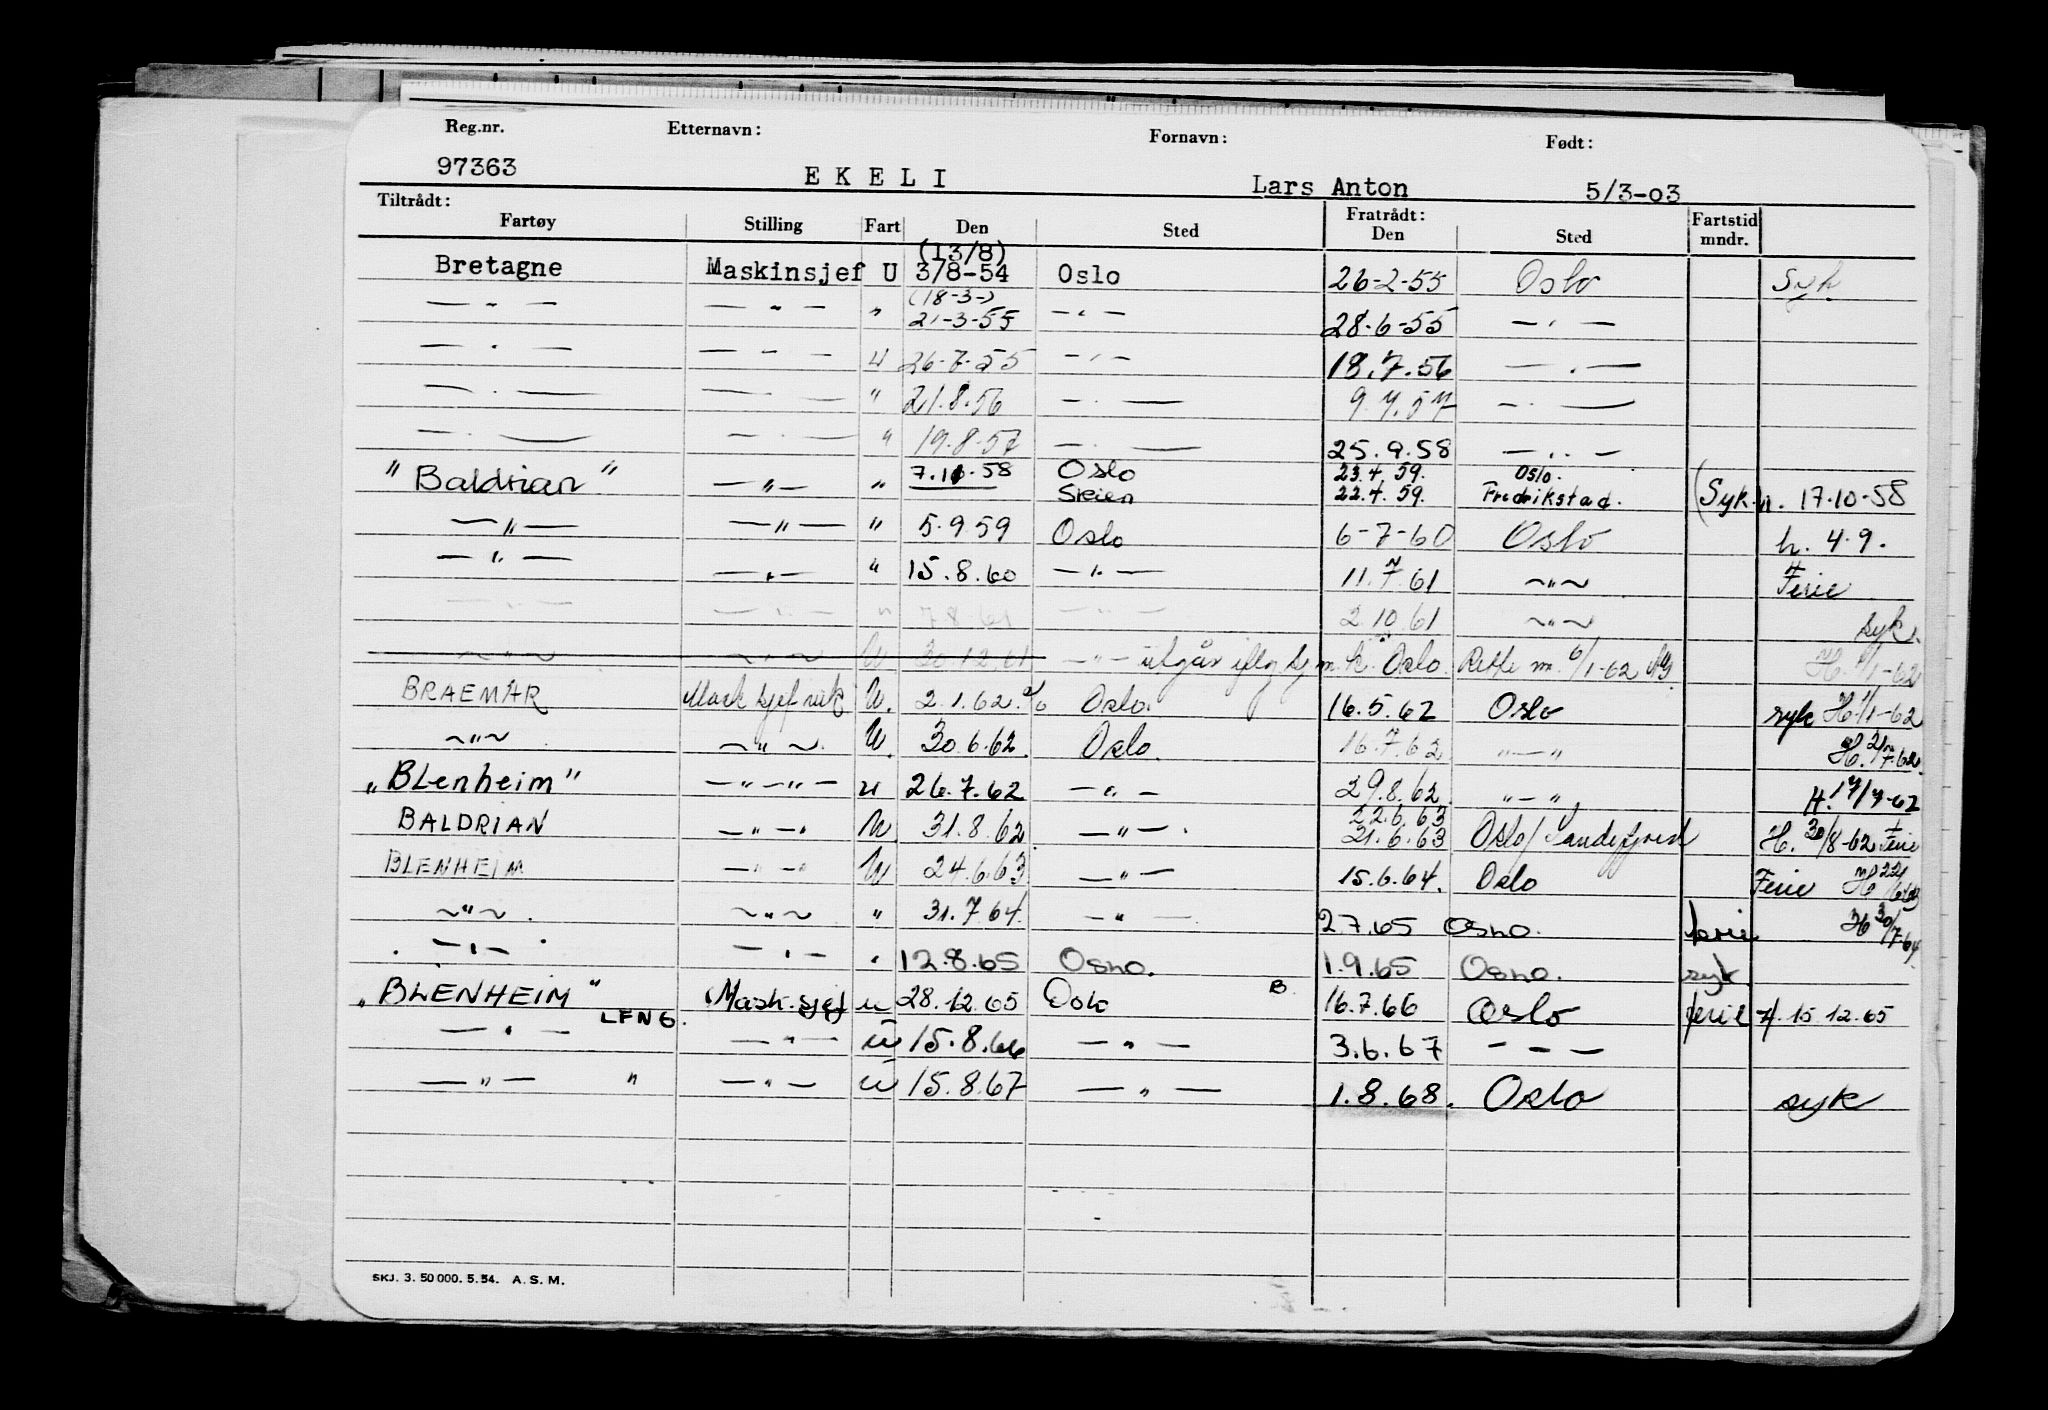 Reg.nr. Etternavn: Fornavn: Født:
97363 EKELI Lars Anton 5/3-03
Tiltrådt: Fratrådt: Fartstid
Fartøy Stilling Fart Den Sted Den Sted mndr.
(13/8)
Bretagne Maskinsjef U 3/8-54 Oslo 26-2-55 Oslo Syk
(18-3-)
— " — — " — " 21-3-55 — " — 28-6-55 — " —
— " — — " — U 26-7-55 — " — 18.7.56 — " —
— " — — " — " 21.8.56 — " — 9.7.57 — " —
— " — — " — " 19.8.57 — " — 25.9.58 — " —
"Baldrian" — " — " 7.10.58 Oslo 23.4.59. Oslo.
Skien 22.4.59. Fredrikstad. (Syk. h. 17-10-58
— " — — " — " 5.9.59 Oslo 6-7-60 Oslo h. 4.9.
— " — — " — " 15.8.60 — " — 11.7.61 ~ " ~ Ferie
— " — — " — " 7.8.61 — " — 2.10.61 ~ " ~ syk.
~ " ~ ~ " ~ U 30.12.61 — " — utgår iflg Sj.m.k. Oslo. Rette m. 6/1-62
BRAEMAR Mask sjef vik U. 2.1.62 Oslo. 16.5.62 Oslo syk H. 1/1-62
~ " ~ ~ " ~ U. 30.6.62. Oslo. 16.7.62 " — " H. 2/7.62.
"BLenheim" — " — " — u 26.7.62 — " — 29.8.62 " — " H. 17/7-62
BALDRIAN — " — U 31.8.62 — " — 22.6.63
21.6.63 Oslo/Sandefjord H. 30/8-62 Ferie
BLENHEIM — " — U 24.6.63 — " — 15.6.64. Oslo Ferie H 22/6.63
~ " ~ ~ " ~ " 31.7.64. — " — 2.7.65 Osno. ferie H 30/7-64
— " — — " — " 12.8.65 Osno. 1.9.65 Osno. syk
"BLENHEIM" Mask.sjef u 28.12.65 Oslo B. 16.7.66 Oslo ferie H. 15.12.65
— " — LFNG. — " — u 15.8.66 — " — 3.6.67 — — —
— " — " — " — u 15.8.67 — " — 1.8.68. Oslo syk
SKJ. 3. 50 000. 5. 54. A. S. M.